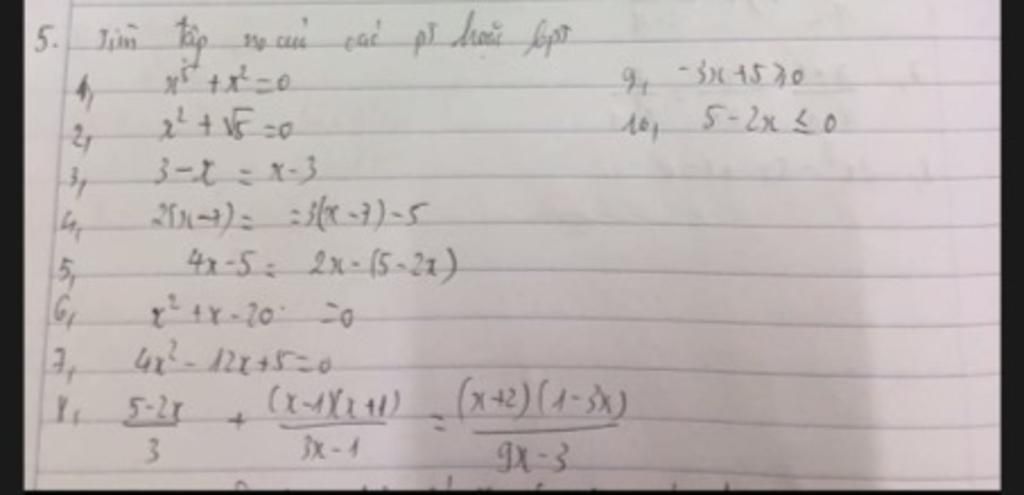 5. Tìm tập no của các pt hoặc bpt
1, x⁵ + x² = 0
2, x² + √5 = 0
3, 3 - x = x - 3
4, 2(x-7) = = 3(x-7) - 5
5, 4x - 5 = 2x - (5 - 2x)
6, x² + x - 20 = 0
7, 4x² - 12x + 5 = 0
8, (5-2x)/3 + ((x-1)(x+1))/(3x-1) = ((x+2)(1-3x))/(9x-3)
9, -3x + 5 ≥ 0
10, 5 - 2x ≤ 0